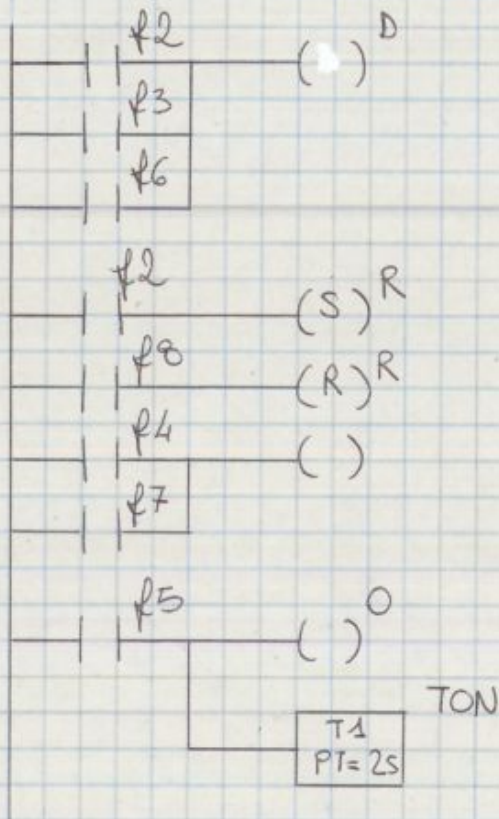 f2 ( ) D
f3
f6
f2 (S) R
f8 (R) R
f4 ( )
f7
f5 ( ) O
TON
T1
PT=2S